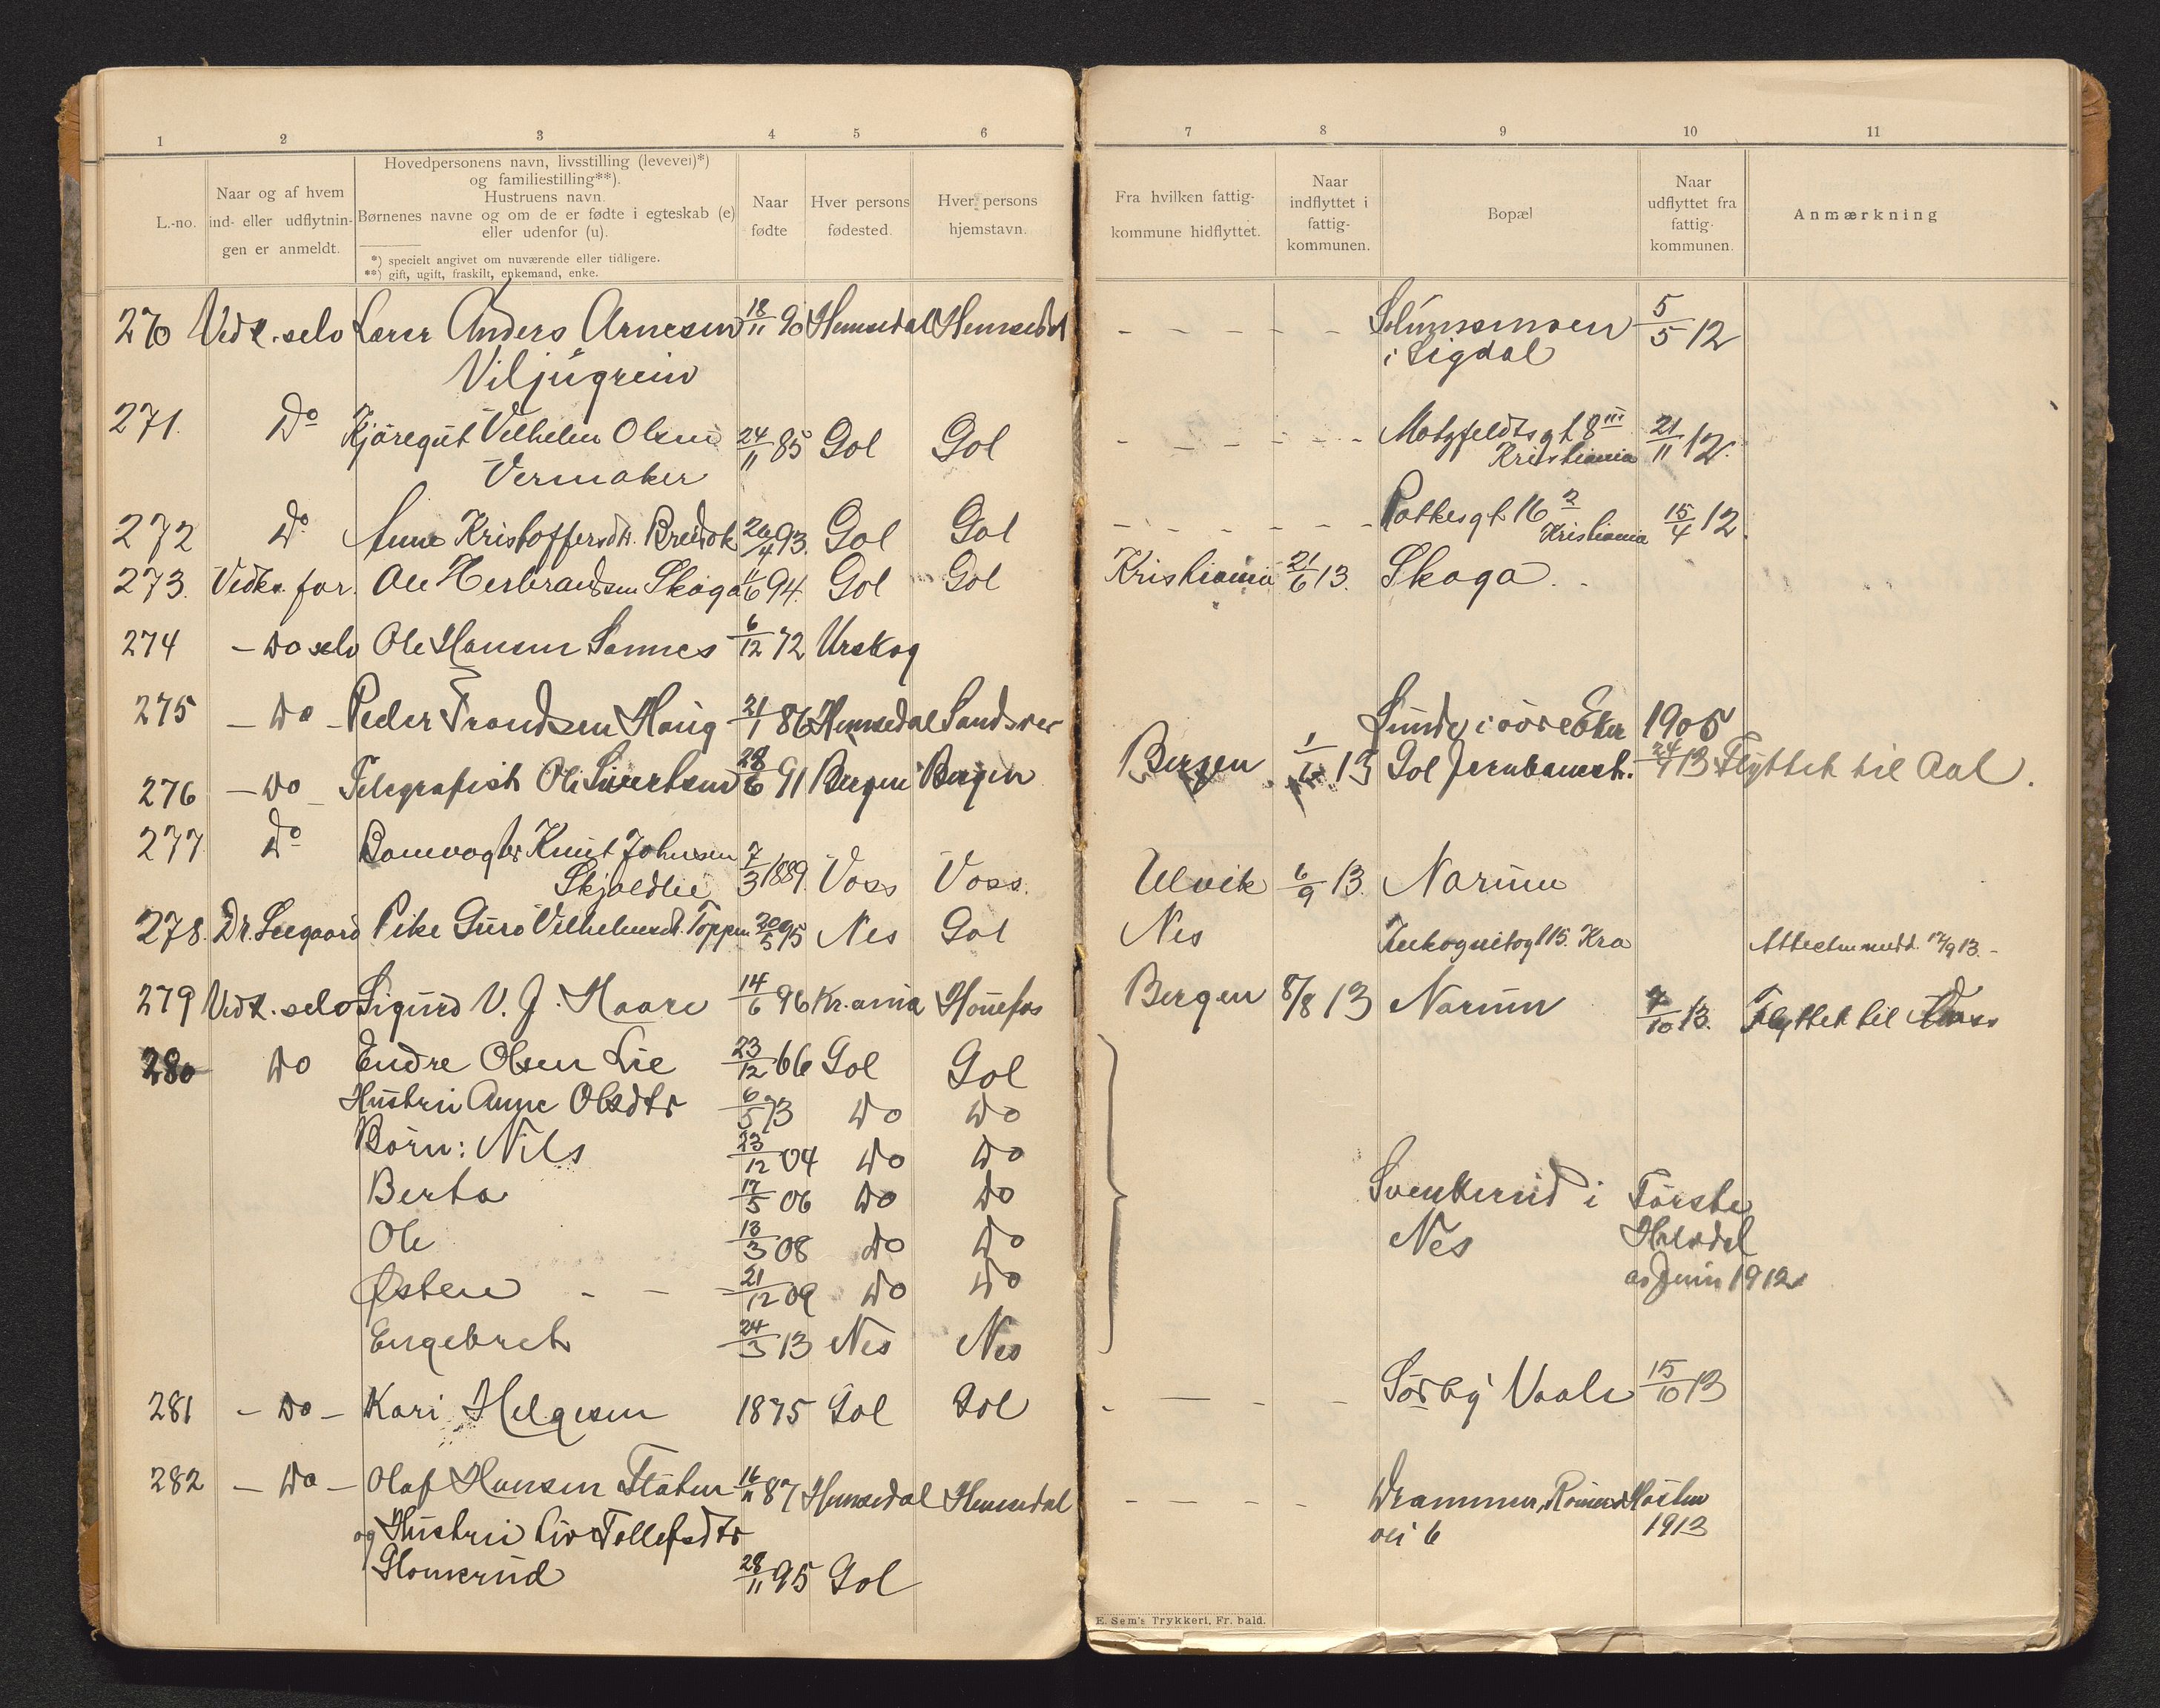 1 2 3 4 5 6 7 8 9 10 11
L.-no.
Naar og af hvem
ind- eller udflytnin-
gen er anmeldt.
Hovedpersonens navn, livsstilling (levevei)*)
og familiestilling**).
Hustruens navn.
Børnenes navne og om de er fødte i egteskab (e)
eller udenfor (u).
*) specielt angivet om nuværende eller tidligere.
**) gift, ugift, fraskilt, enkemand, enke.
Naar
fødte
Hver persons
fødested.
Hver persons
hjemstavn.
Fra hvilken fattig-
kommune hidflyttet.
Naar
indflyttet i
fattig-
kommunen.
Bopæl
Naar
udflyttet fra
fattig-
kommunen.
Anmærkning
270 Vedk. selv Lærer Anders Arnesen 18/11 90 Hemsedal Hemsedal - - - - - 5/5 12
Viljugrein i Sigdal
271. Do Kjøregut Vilhelm Olsen 24/11 85 Gol Gol - - - - - - Motzfeldtsgt 8 III 21/11 12.
Vermaker Kristiania
272 Do Anne Kristoffersdtr. 26/4 93. Gol Gol - - - - - - 16 2 Kristiania 15/4 12.
273. Vedk. far. Ole Herbrandsen Skaga 11/6 94. Gol Gol Kristiania 21/6 13. Skaga.
274 - Do selv Ole Hansen Sannes 6/12 72 Urskog
275 - Do - Peder Trondsen Haug 21/1 86 Hemsedal Sandsver Lunde i øvre Eker 1905
276 - Do - Telegrafist Ole Sivertsen 28/6 91 Bergen Bergen Bergen 13 Gol Jernbanest. 24/7 13 Flyttet til Aal.
277 Do Banevogter Knut Johnsen 7/3 1889. Voss Voss. Ulvik 6/9 13. Narum
Skjoldlie
278. Dr. Seegaard Pike Guro Vilhelmsdt. Toppen 20/5 95 Nes Gol Nes Inkognitogt 15. Kra 17/9 13. -
279 Vedk. selv Sigurd V. J. Haare 14/6 96 Kr.ania Hønefos Bergen 8/8 13 Narum 7/10 13. Flyttet til
280 Do Endre Olsen Lie 23/12 66 Gol Gol
Hustru Anne Olsdtr 6/5 73 Do Do
Børn: Nils 23/12 04 Do Do
Berta 17/5 06 Do Do Svenkerud i Første
Ole 13/3 08 Do Do Nes Halvdel
Østen - - - 21/12 09 Do Do av Juni 1912
Engebret 24/3 13 Nes Nes
281 - Do - Kari Helgesen 1875 Gol Gol - — - - Sørby Vaale 15/10 13
282 - Do - Olaf Hansen Fløten 16/11 87 Hemsedal Hemsedal - - - - Drammen, Høsten
og Hustru Liv Tollefsdtr vei 6 1913
Glomerud 28/11 95 Gol
E. Sem's Trykkeri, Fr. hald.